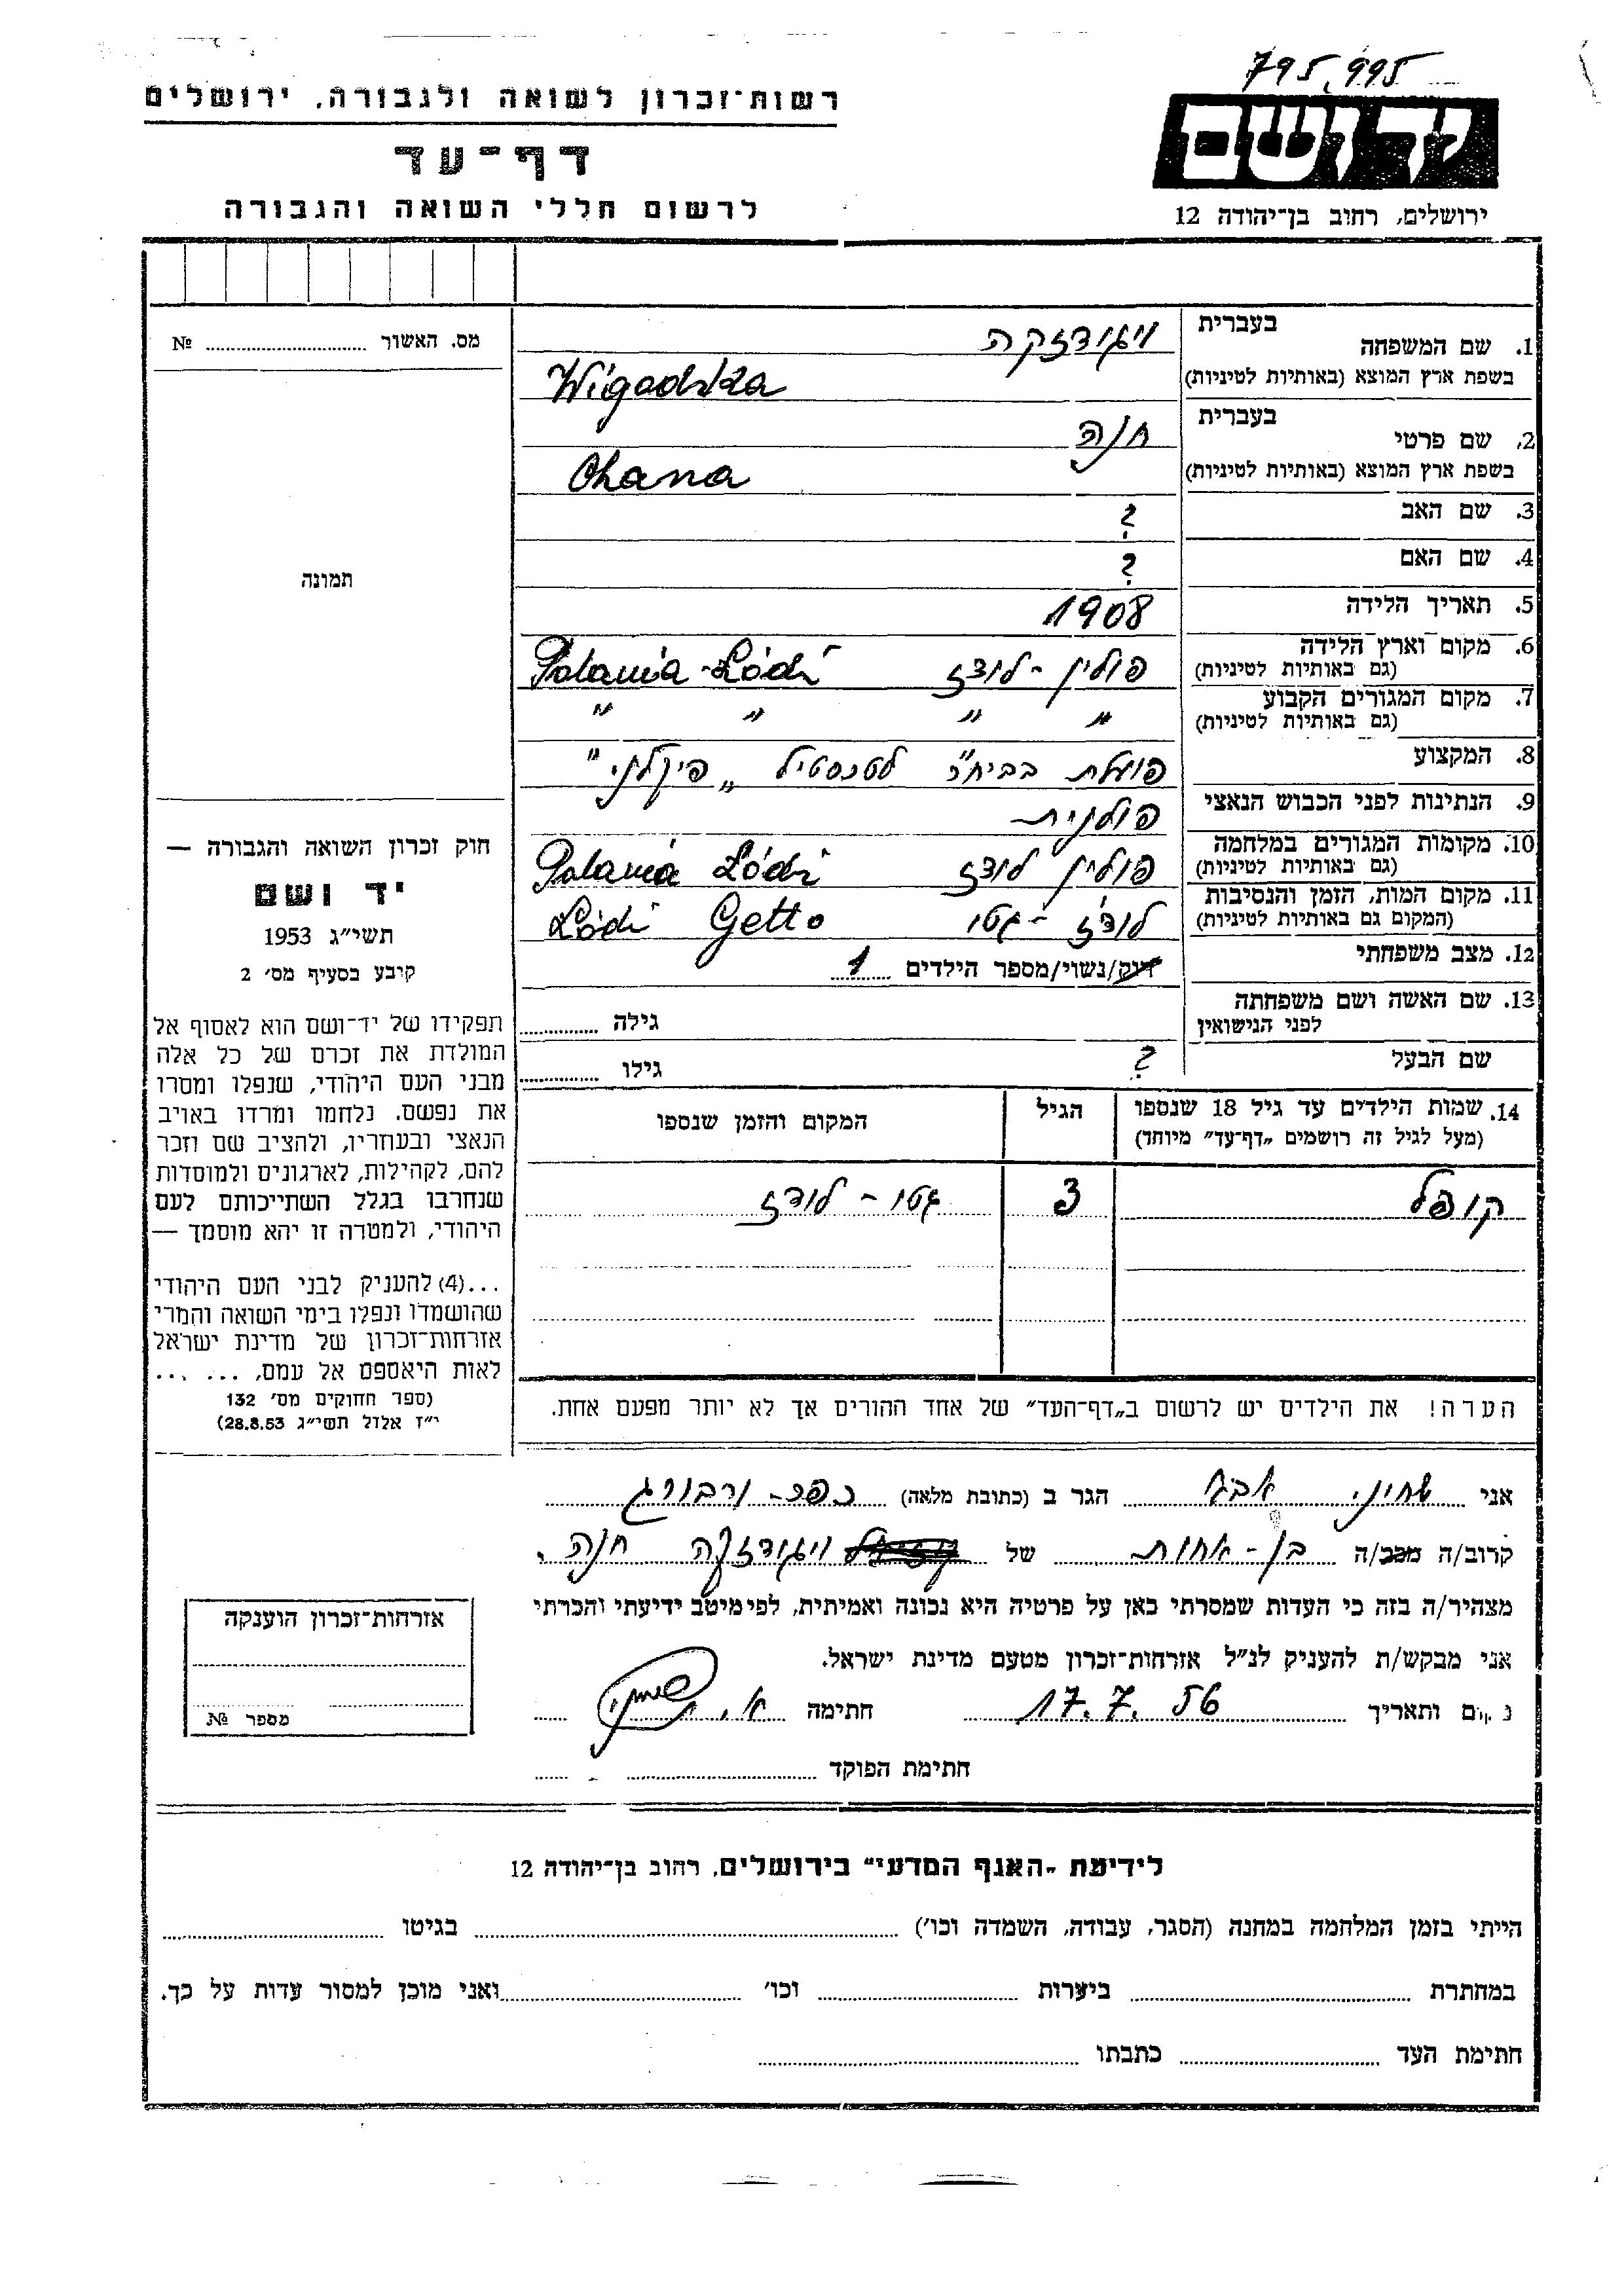 795,995
רשות־זכרון לשואה ולגבורה, ירושלים
דף־עד
לרשום חללי השואה והגבורה
יד ושם
ירושלים, רחוב בן־יהודה 12
מס. האשור № ..........
תמונה
חוק זכרון השואה והגבורה —
יד ושם
תשי״ג 1953
קיבע בסעיף מס׳ 2
תפקידו של יד־ושם הוא לאסוף אל
המולדת את זכרם של כל אלה
מבני העם היהודי, שנפלו ומסרו
את נפשם, נלחמו ומרדו באויב
הנאצי ובעוזריו, ולהציב שם וזכר
להם, לקהילות, לארגונים ולמוסדות
שנחרבו בגלל השתייכותם לעם
היהודי, ולמטרה זו יהא מוסמך —
...(4) להעניק לבני העם היהודי
שהושמדו ונפלו בימי השואה והמרי
אזרחות־זכרון של מדינת ישראל
לאות היאספם אל עמם, ... ...
(ספר החוקים מס׳ 132
י״ז אלול תשי״ג 28.8.53)
1. שם המשפחה בעברית ויגודזקה
בשפת ארץ המוצא (באותיות לטיניות) Wigodzka
2. שם פרטי בעברית חנה
בשפת ארץ המוצא (באותיות לטיניות) Chana
3. שם האב ?
4. שם האם ?
5. תאריך הלידה 1908
6. מקום וארץ הלידה (גם באותיות לטיניות) פולין - לודז Polania - Łódź
7. מקום המגורים הקבוע (גם באותיות לטיניות) " " " "
8. המקצוע פועלת בביח״ר לטכסטיל „פיקלני"
9. הנתינות לפני הכבוש הנאצי פולנית
10. מקומות המגורים במלחמה (גם באותיות לטיניות) פולין לודז Polania Łódź
11. מקום המות, הזמן והנסיבות (המקום גם באותיות לטיניות) לודז - גטו Łódź Getto
12. מצב משפחתי רווק/נשוי/מספר הילדים 1
13. שם האשה ושם משפחתה לפני הנישואין גילה
שם הבעל ? גילו
14. שמות הילדים עד גיל 18 שנספו הגיל המקום והזמן שנספו
(מעל לגיל זה רושמים „דף־עד״ מיוחד)
קופל 3 גטו - לודז
הערה! את הילדים יש לרשום ב„דף־העד״ של אחד ההורים אך לא יותר מפעם אחת.
אני שחיני אבא הגר ב (כתובת מלאה) כפר - ורבורג
קרוב/ה מכר/ה בן - אחות של ויגודזקה חנה.
מצהיר/ה בזה כי העדות שמסרתי כאן על פרטיה היא נכונה ואמיתית, לפי מיטב ידיעתי והכרתי
אני מבקש/ת להעניק לנ״ל אזרחות־זכרון מטעם מדינת ישראל.
ותאריך 17.7.56 חתימה
חתימת הפוקד
אזרחות־זכרון הוענקה
מספר №
לידיעת „האגף המדעי״ בירושלים, רחוב בן־יהודה 12
הייתי בזמן המלחמה במחנה (הסגר, עבודה, השמדה וכו׳) .......... בגיטו ..........
במחתרת .......... ביערות .......... וכו׳ .......... ואני מוכן למסור עדות על כך.
חתימת העד .......... כתבתו ..........